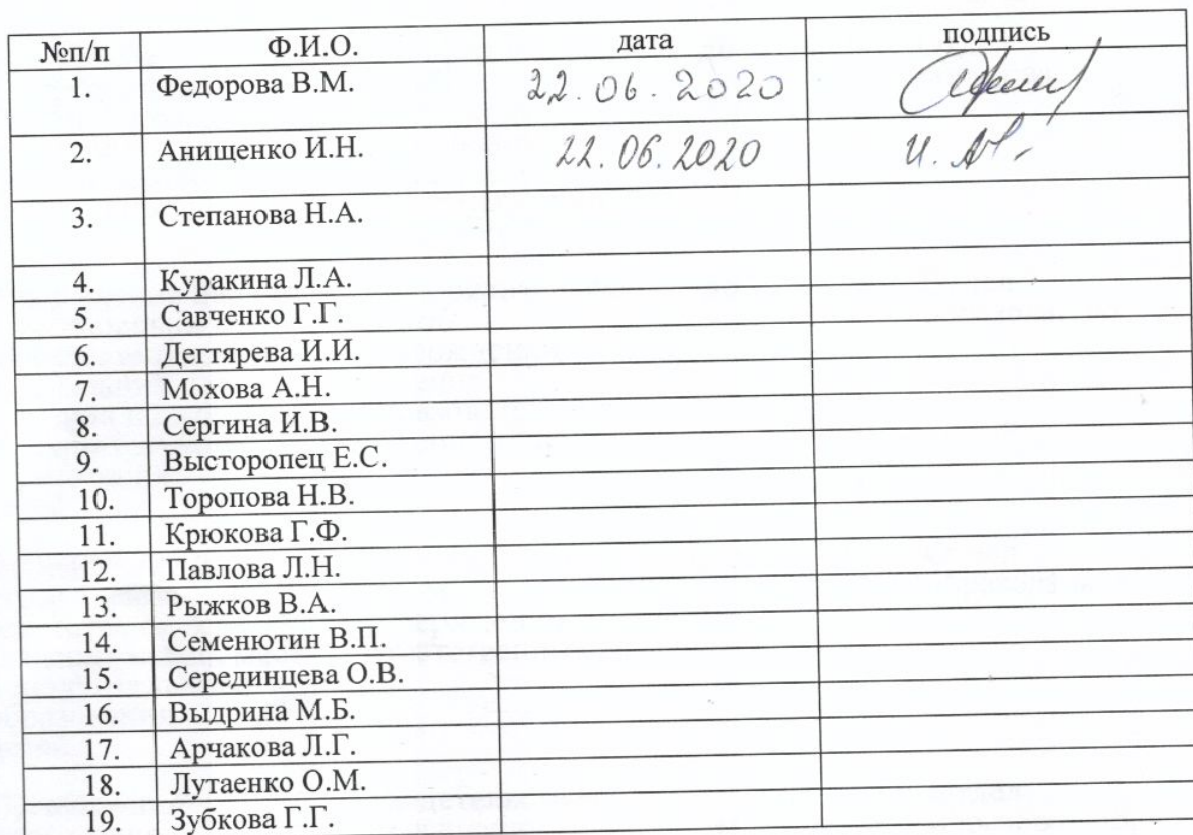 №п/п Ф.И.О. дата подпись
1. Федорова В.М. 22.06.2020
2. Анищенко И.Н. 22.06.2020 И. Ан.
3. Степанова Н.А.
4. Куракина Л.А.
5. Савченко Г.Г.
6. Дегтярева И.И.
7. Мохова А.Н.
8. Сергина И.В.
9. Высторопец Е.С.
10. Торопова Н.В.
11. Крюкова Г.Ф.
12. Павлова Л.Н.
13. Рыжков В.А.
14. Семенютин В.П.
15. Серединцева О.В.
16. Выдрина М.Б.
17. Арчакова Л.Г.
18. Лутаенко О.М.
19. Зубкова Г.Г.